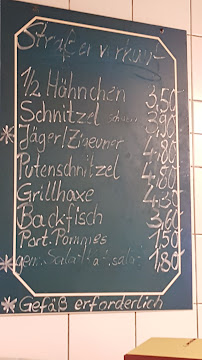 Straßenverkauf
1/2 Hähnchen 3,50
Schnitzel Schwein 3,90
* Jäger/Zigeuner 4,80
Putenschnitzel 4,80
Grillhaxe 4,30
Backfisch 3,60
Port. Pommes 1,50
* gem. Salat/Kat.salat 1,80
* Gefäß erforderlich